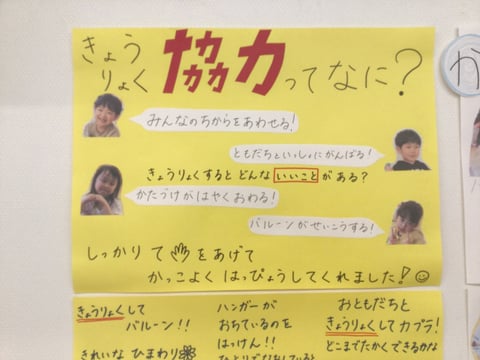 きょうりょく 協力ってなに?
みんなのちからをあわせる!
ともだちといっしょにがんばる!
きょうりょくするとどんないいことがある?
かたづけがはやくおわる!
バルーンがせいこうする!
しっかりて✋をあげて
かっこよくはっぴょうしてくれました!☺
きょうりょくして
バルーン!!
きれいなひまわり
ハンガーが
おちているのを
はっけん!!
おともだちと
きょうりょくしてカプラ!
どこまでたかくできるかな
か